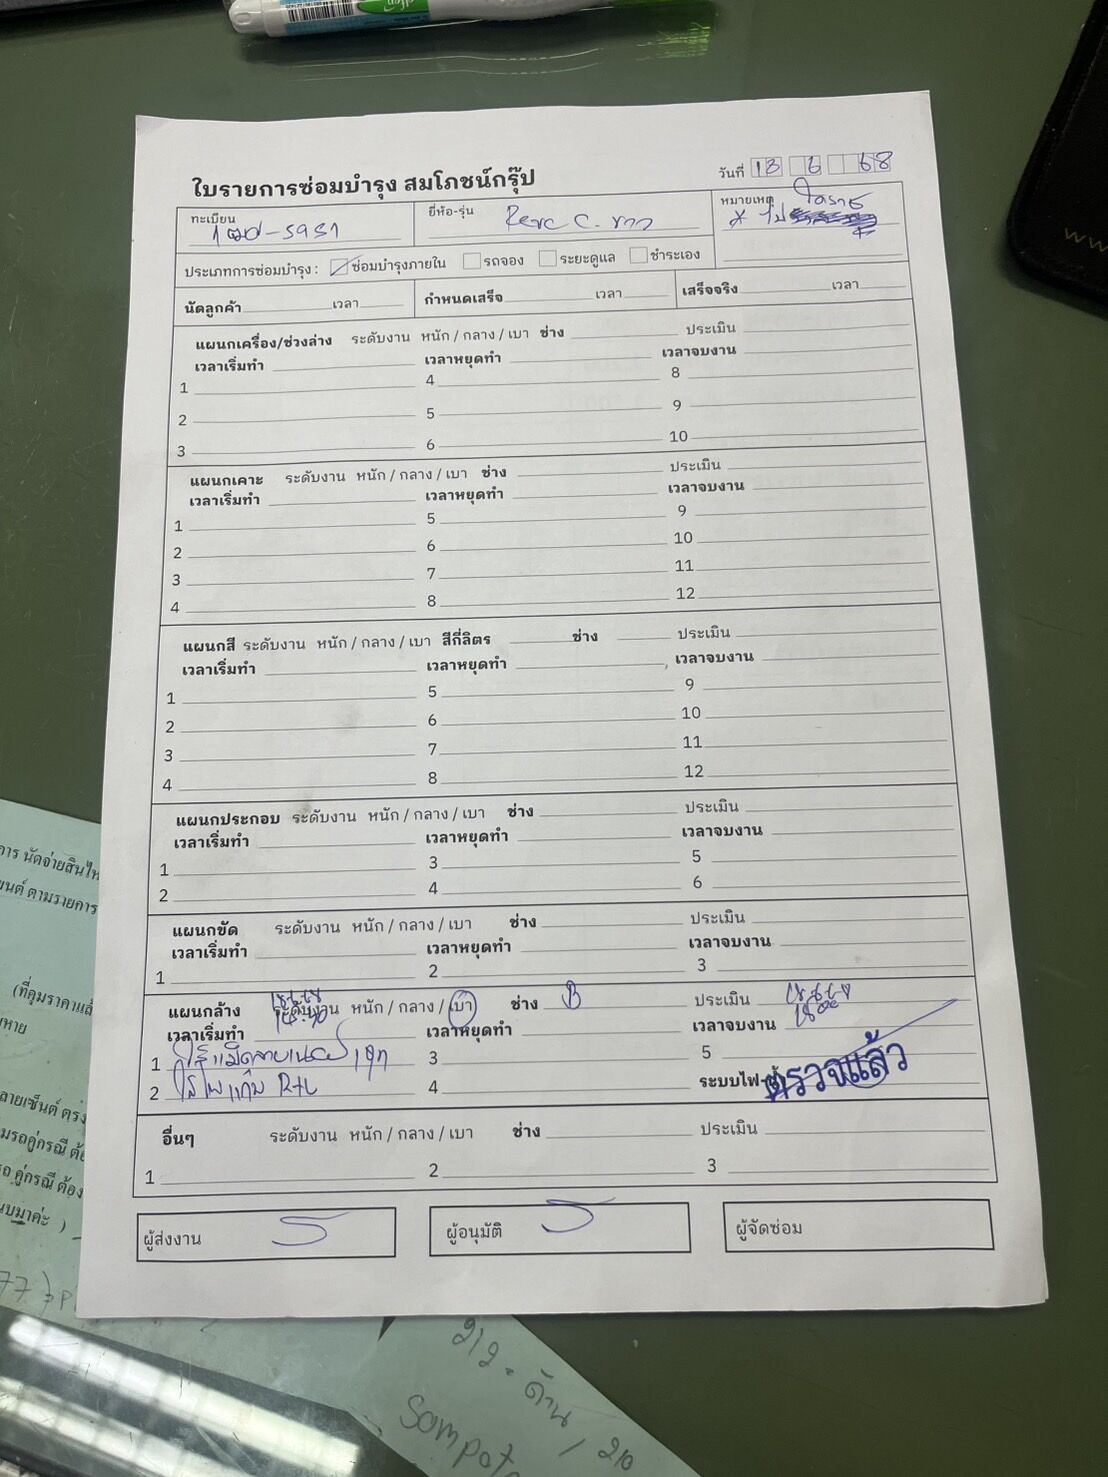 ใบรายการซ่อมบำรุง สมโภชน์กรุ๊ป
วันที่ 13 6 68
ทะเบียน
ยี่ห้อ-รุ่น
หมายเหตุ
ประเภทการซ่อมบำรุง : ซ่อมบำรุงภายใน รถจอง ระยะดูแล ชำระเอง
นัดลูกค้า เวลา กำหนดเสร็จ เวลา เสร็จจริง เวลา
แผนกเครื่อง/ช่วงล่าง ระดับงาน หนัก / กลาง / เบา ช่าง ประเมิน
เวลาเริ่มทำ เวลาหยุดทำ เวลาจบงาน
1 4 8
2 5 9
3 6 10
แผนกเคาะ ระดับงาน หนัก / กลาง / เบา ช่าง ประเมิน
เวลาเริ่มทำ เวลาหยุดทำ เวลาจบงาน
1 5 9
2 6 10
3 7 11
4 8 12
แผนกสี ระดับงาน หนัก / กลาง / เบา สีกี่ลิตร ช่าง ประเมิน
เวลาเริ่มทำ เวลาหยุดทำ เวลาจบงาน
1 5 9
2 6 10
3 7 11
4 8 12
แผนกประกอบ ระดับงาน หนัก / กลาง / เบา ช่าง ประเมิน
เวลาเริ่มทำ เวลาหยุดทำ เวลาจบงาน
1 3 5
2 4 6
แผนกขัด ระดับงาน หนัก / กลาง / เบา ช่าง ประเมิน
เวลาเริ่มทำ เวลาหยุดทำ เวลาจบงาน
1 2 3
แผนกล้าง ระดับงาน หนัก / กลาง / เบา ช่าง B ประเมิน
เวลาเริ่มทำ เวลาหยุดทำ เวลาจบงาน
1 3 5
2 4 ระบบไฟ ตรวจแล้ว
อื่นๆ ระดับงาน หนัก / กลาง / เบา ช่าง ประเมิน
1 2 3
ผู้ส่งงาน ผู้อนุมัติ ผู้จัดซ่อม